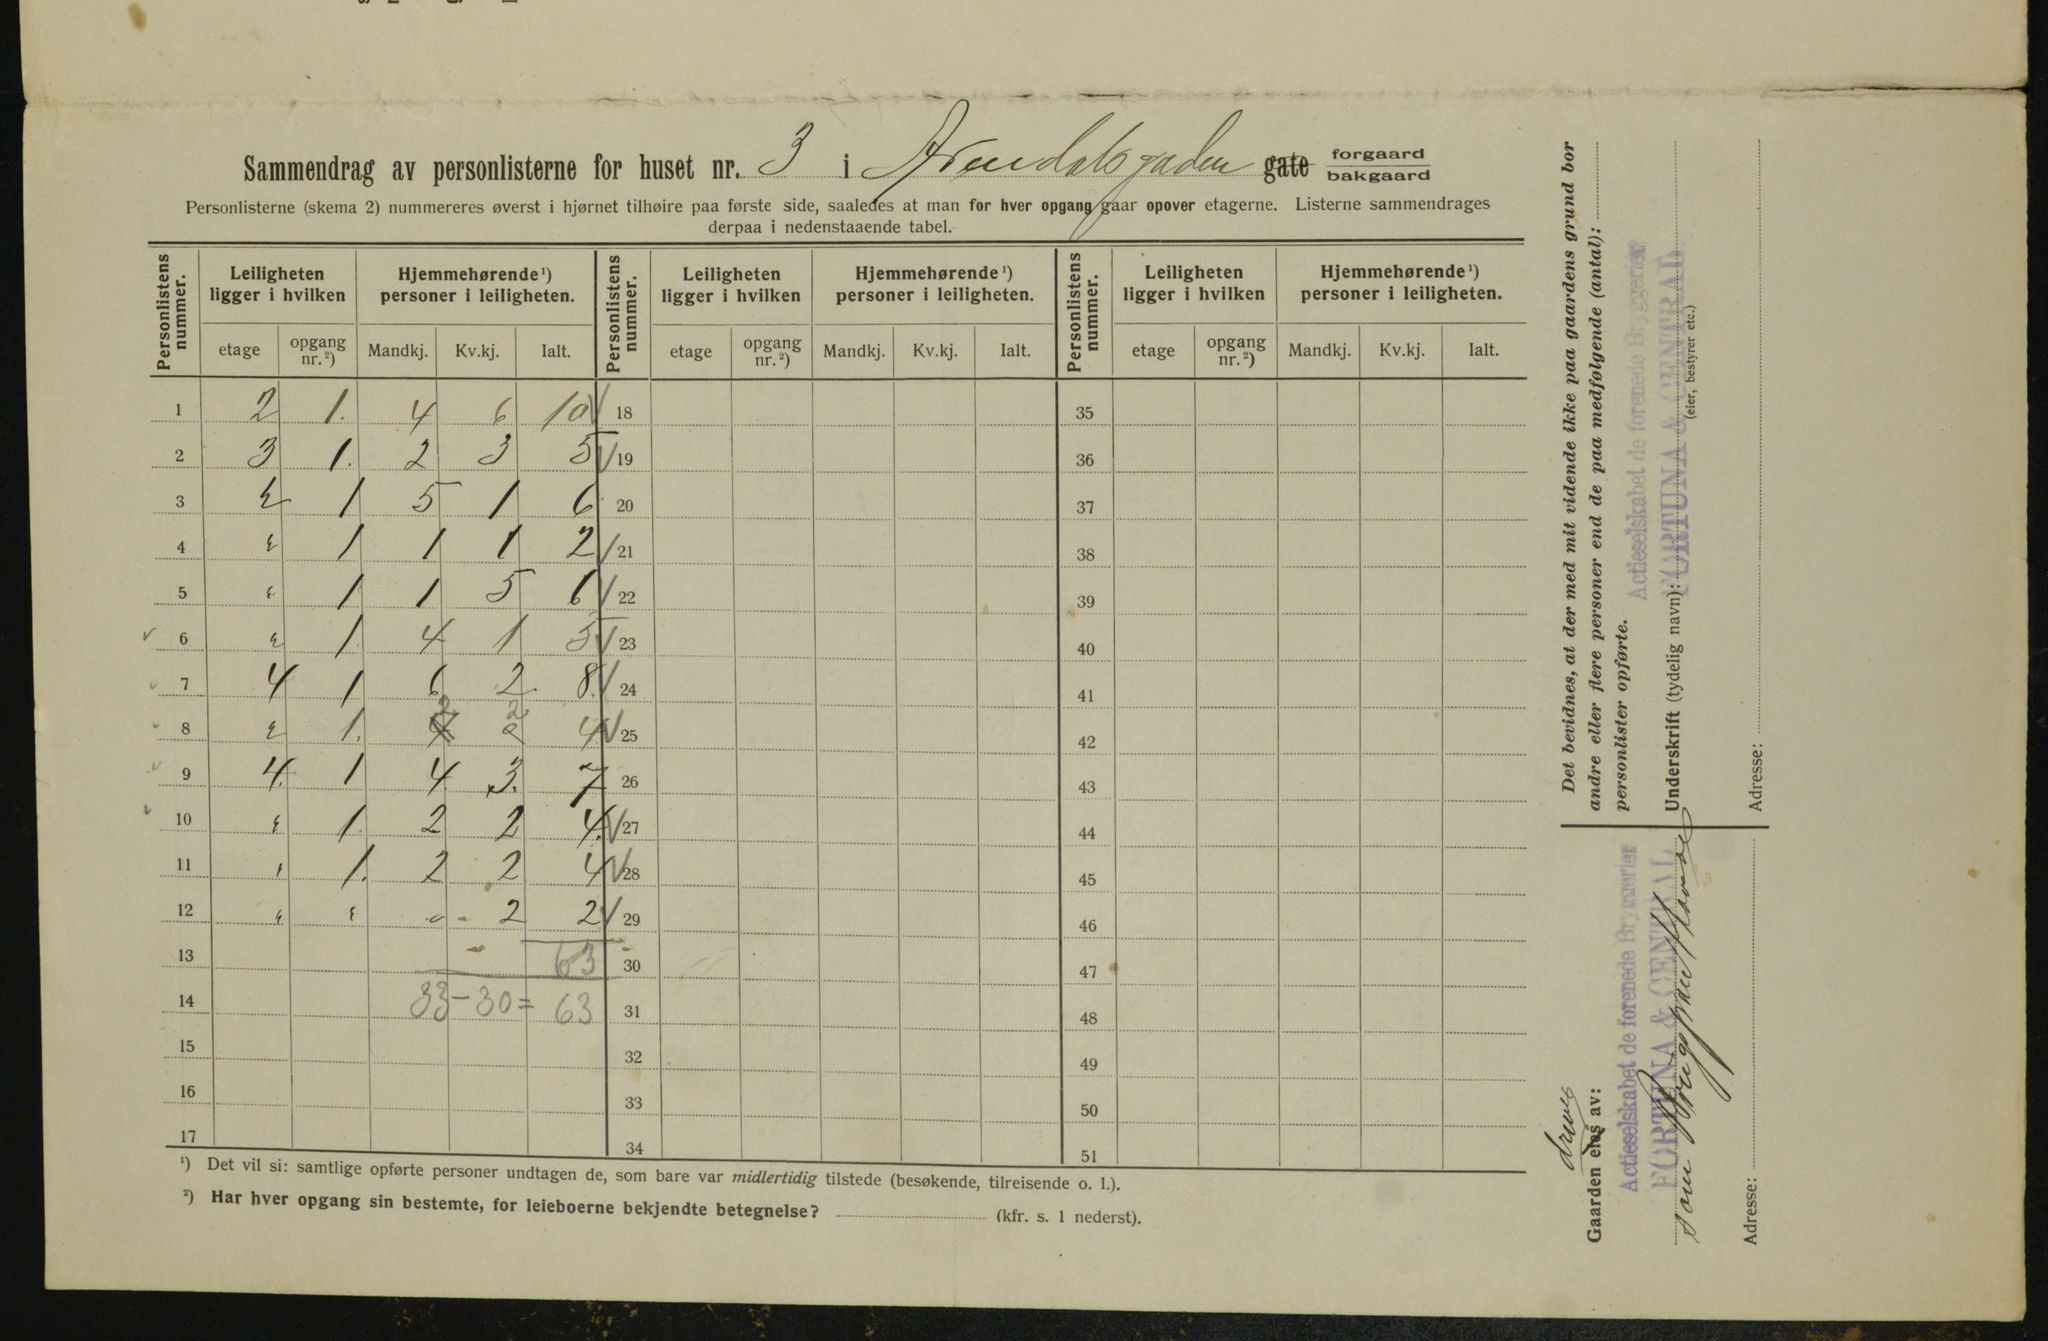 Sammendrag av personlisterne for huset nr. 3 i Arendalsgaden gate forgaard bakgaard
Personlisterne (skema 2) nummereres øverst i hjørnet tilhøire paa første side, saaledes at man for hver opgang gaar opover etagerne. Listerne sammendrages
derpaa i nedenstaaende tabel.
Personlistens nummer. Leiligheten ligger i hvilken Hjemmehørende ¹) personer i leiligheten. Personlistens nummer. Leiligheten ligger i hvilken Hjemmehørende ¹) personer i leiligheten. Personlistens nummer. Leiligheten ligger i hvilken Hjemmehørende ¹) personer i leiligheten.
etage opgang nr. ²) Mandkj. Kv.kj. Ialt. etage opgang nr. ²) Mandkj. Kv.kj. Ialt. etage opgang nr. ²) Mandkj. Kv.kj. Ialt.
1 2 1. 4 6 10 √ 18 35
2 3 1. 2 3 5 √ 19 36
3 " 1 5 1 6 20 37
4 " 1 1 1 2 √ 21 38
5 " 1 1 5 6 √ 22 39
√ 6 " 1. 4 1 5 √ 23 40
√ 7 4 1 6 2 8 √ 24 41
√ 8 " 1. 2 2 4 √ 25 42
√ 9 4. 1 4 3. 7 26 43
√ 10 " 1. 2 2 4. √ 27 44
11 " 1. 2 2 4 √ 28 45
12 " " - 2 2 √ 29 46
13 63 30 47
14 33 - 30 = 63 31 48
15 32 49
16 33 50
17 34 51
¹) Det vil si: samtlige opførte personer undtagen de, som bare var midlertidig tilstede (besøkende, tilreisende o. l.).
²) Har hver opgang sin bestemte, for leieboerne bekjendte betegnelse? (kfr. s. 1 nederst).
Det bevidnes, at der med mit vidende ikke paa gaardens grund bor
andre eller flere personer end de paa medfølgende (antal):
personlister opførte.
Actieselskabet de forenede Bryggerier
FORTUNA & CENTRAL
Underskrift (tydelig navn):
(eier, bestyrer etc.)
Adresse:
drives
Gaarden eies av:
Actieselskabet de forenede Bryggerier
FORTUNA & CENTRAL
som
Adresse: